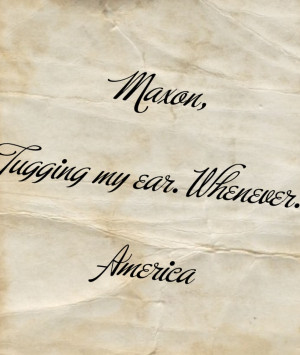 Maxon,
Tugging my ear. Whenever.
America